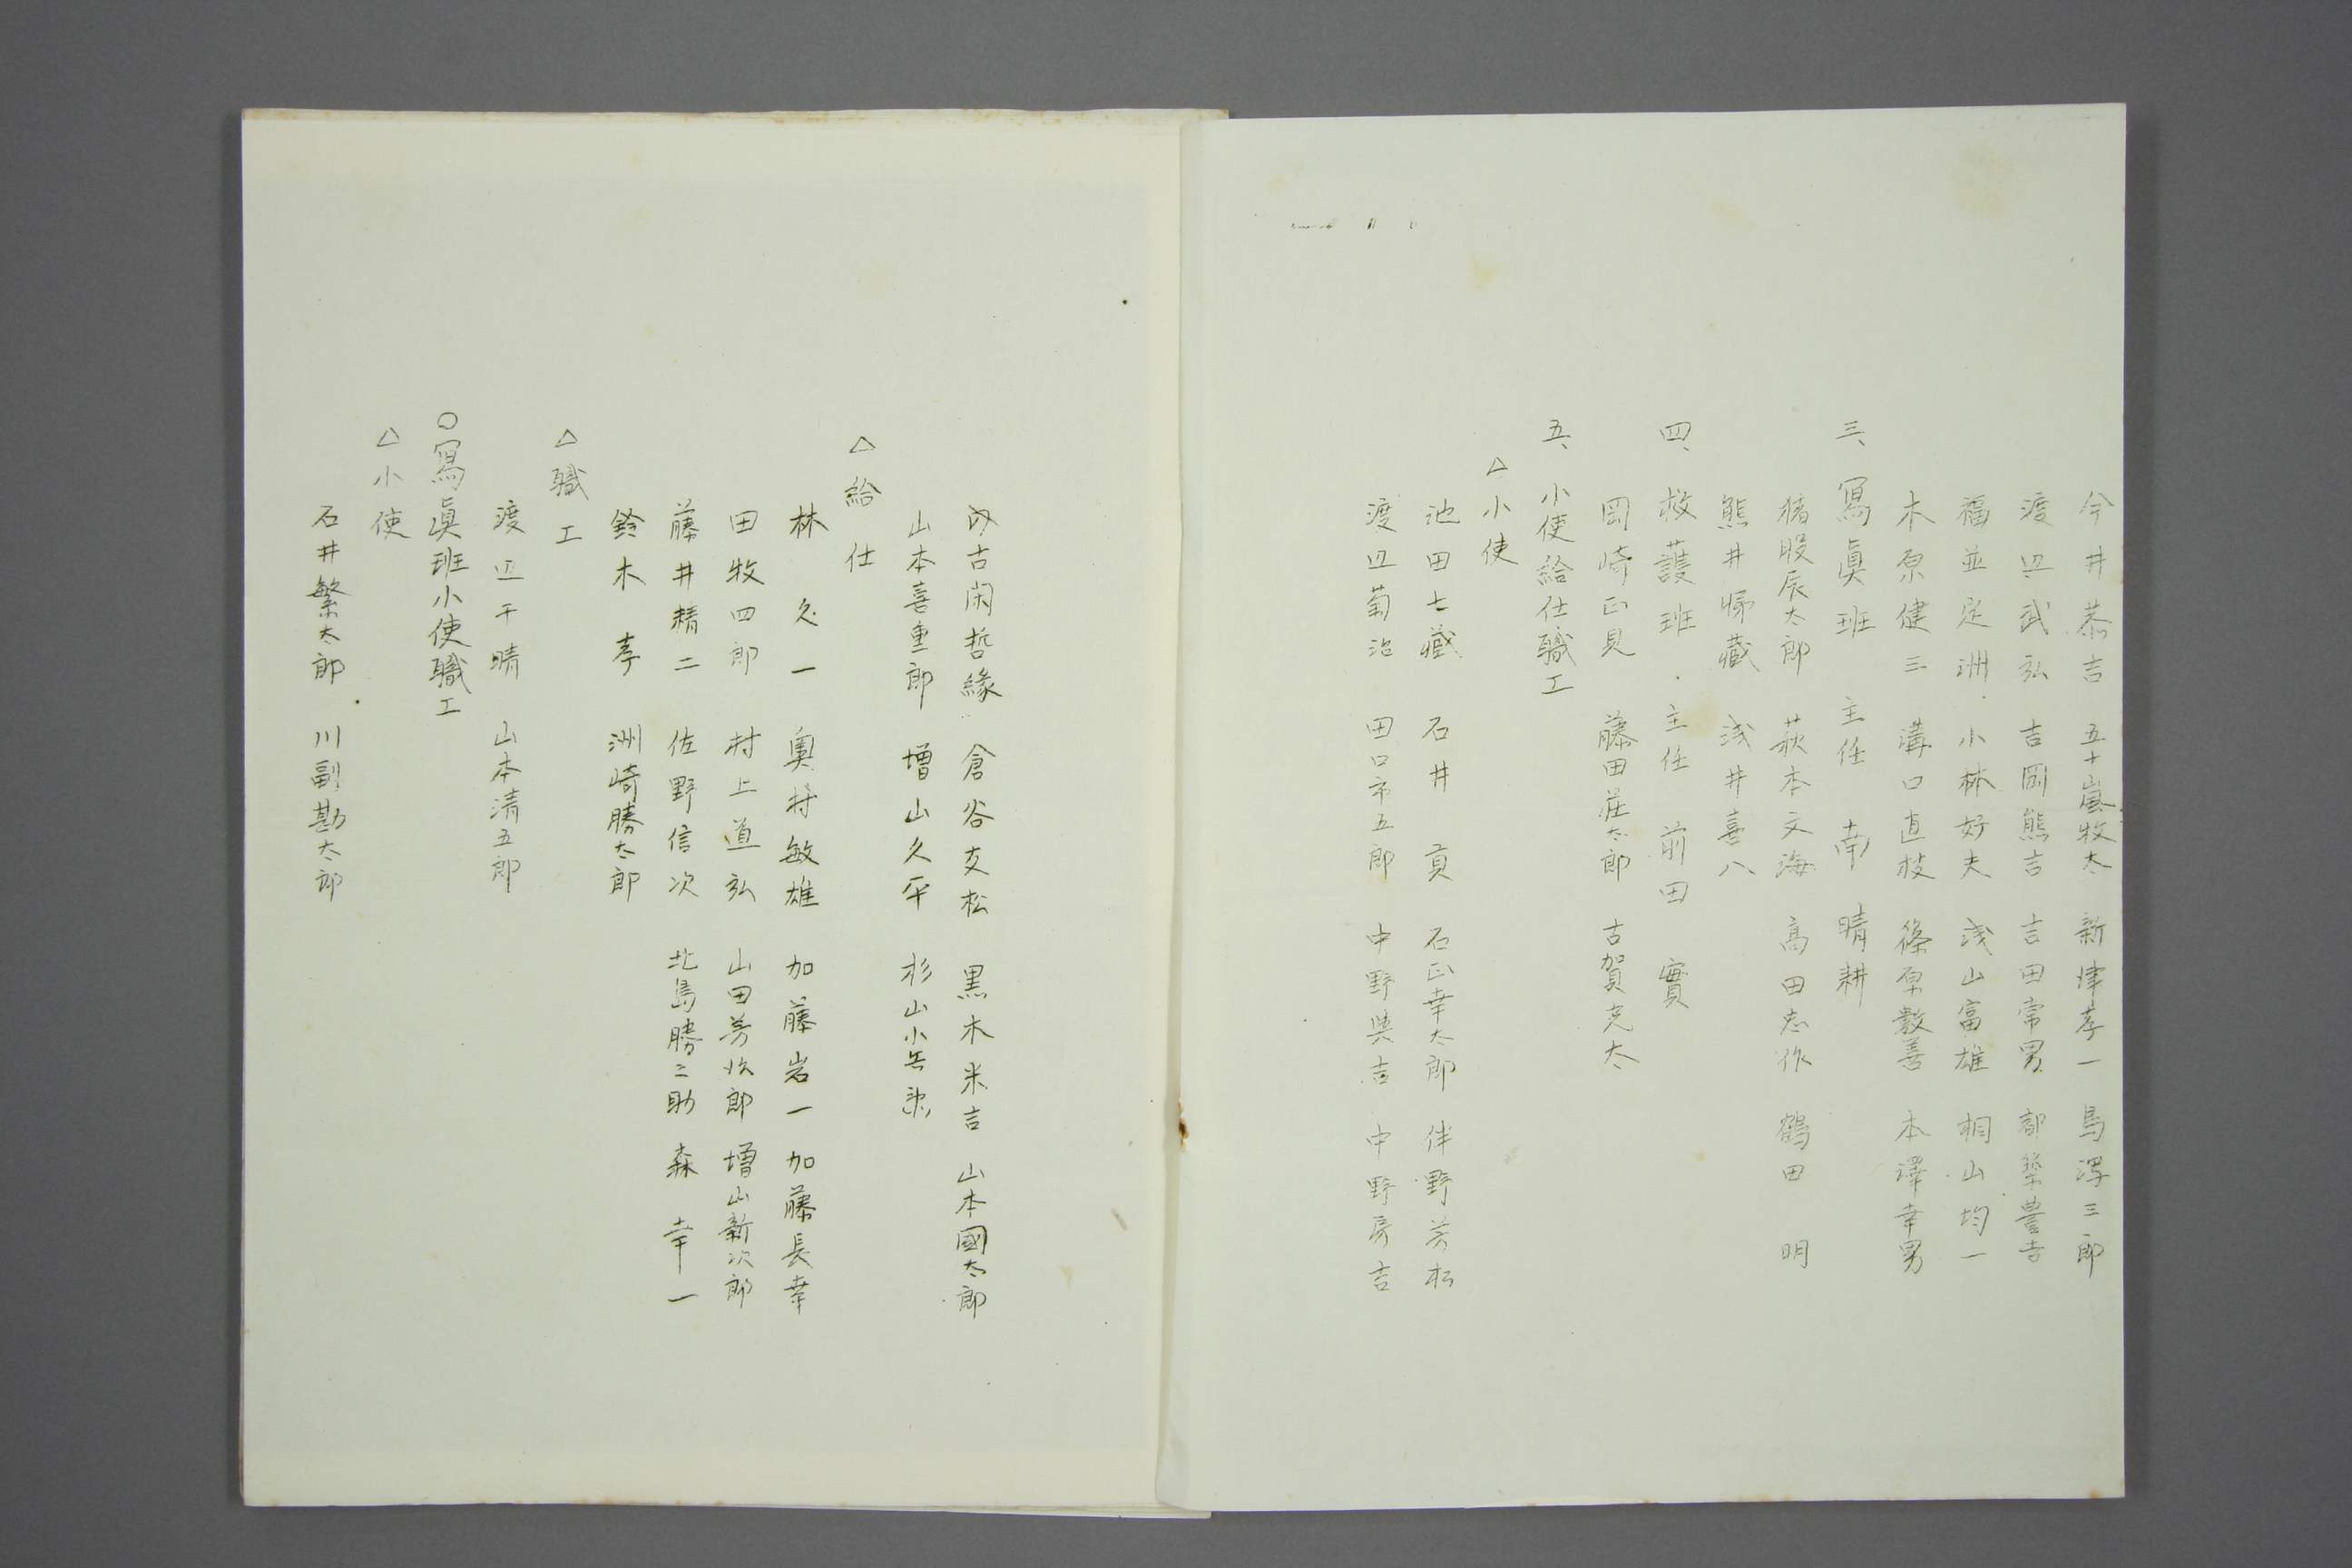 今井恭吉　五十嵐牧太　新津孝一　島淳三郎
渡辺武弘　吉岡熊吉　吉田常男　都築豊吉
福並定洲　小林好夫　浅山富雄　桐山均一
木原健三　溝口直枝　篠原数善　本澤幸男
三、寫眞班　主任　南　晴耕
猪股辰太郎　萩本文海　高田忠作　鶴田　明
熊井帰藏　浅井喜八
四、救護班　主任　前田　實
岡崎正見　藤田荘太郎　古賀克太
五、小使給仕職工
△小使
池田七藏　石井　貢　石正幸太郎　伴野芳松
渡辺菊治　田口市五郎　中野與吉　中野房吉
古閑哲緣　倉谷友松　黒木米吉　山本國太郎
山本喜重郎　増山久平　杉山小兵衛
△給仕
林　久一　奥村敏雄　加藤岩一　加藤長幸
田牧四郎　村上道弘　山田芳次郎　増山新次郎
藤井精二　佐野信次　北島勝之助　森　幸一
鈴木　孝　洲崎勝太郎
△職工
渡辺千晴　山本清五郎
○寫眞班小使職工
△小使
石井繁太郎　川副勘太郎